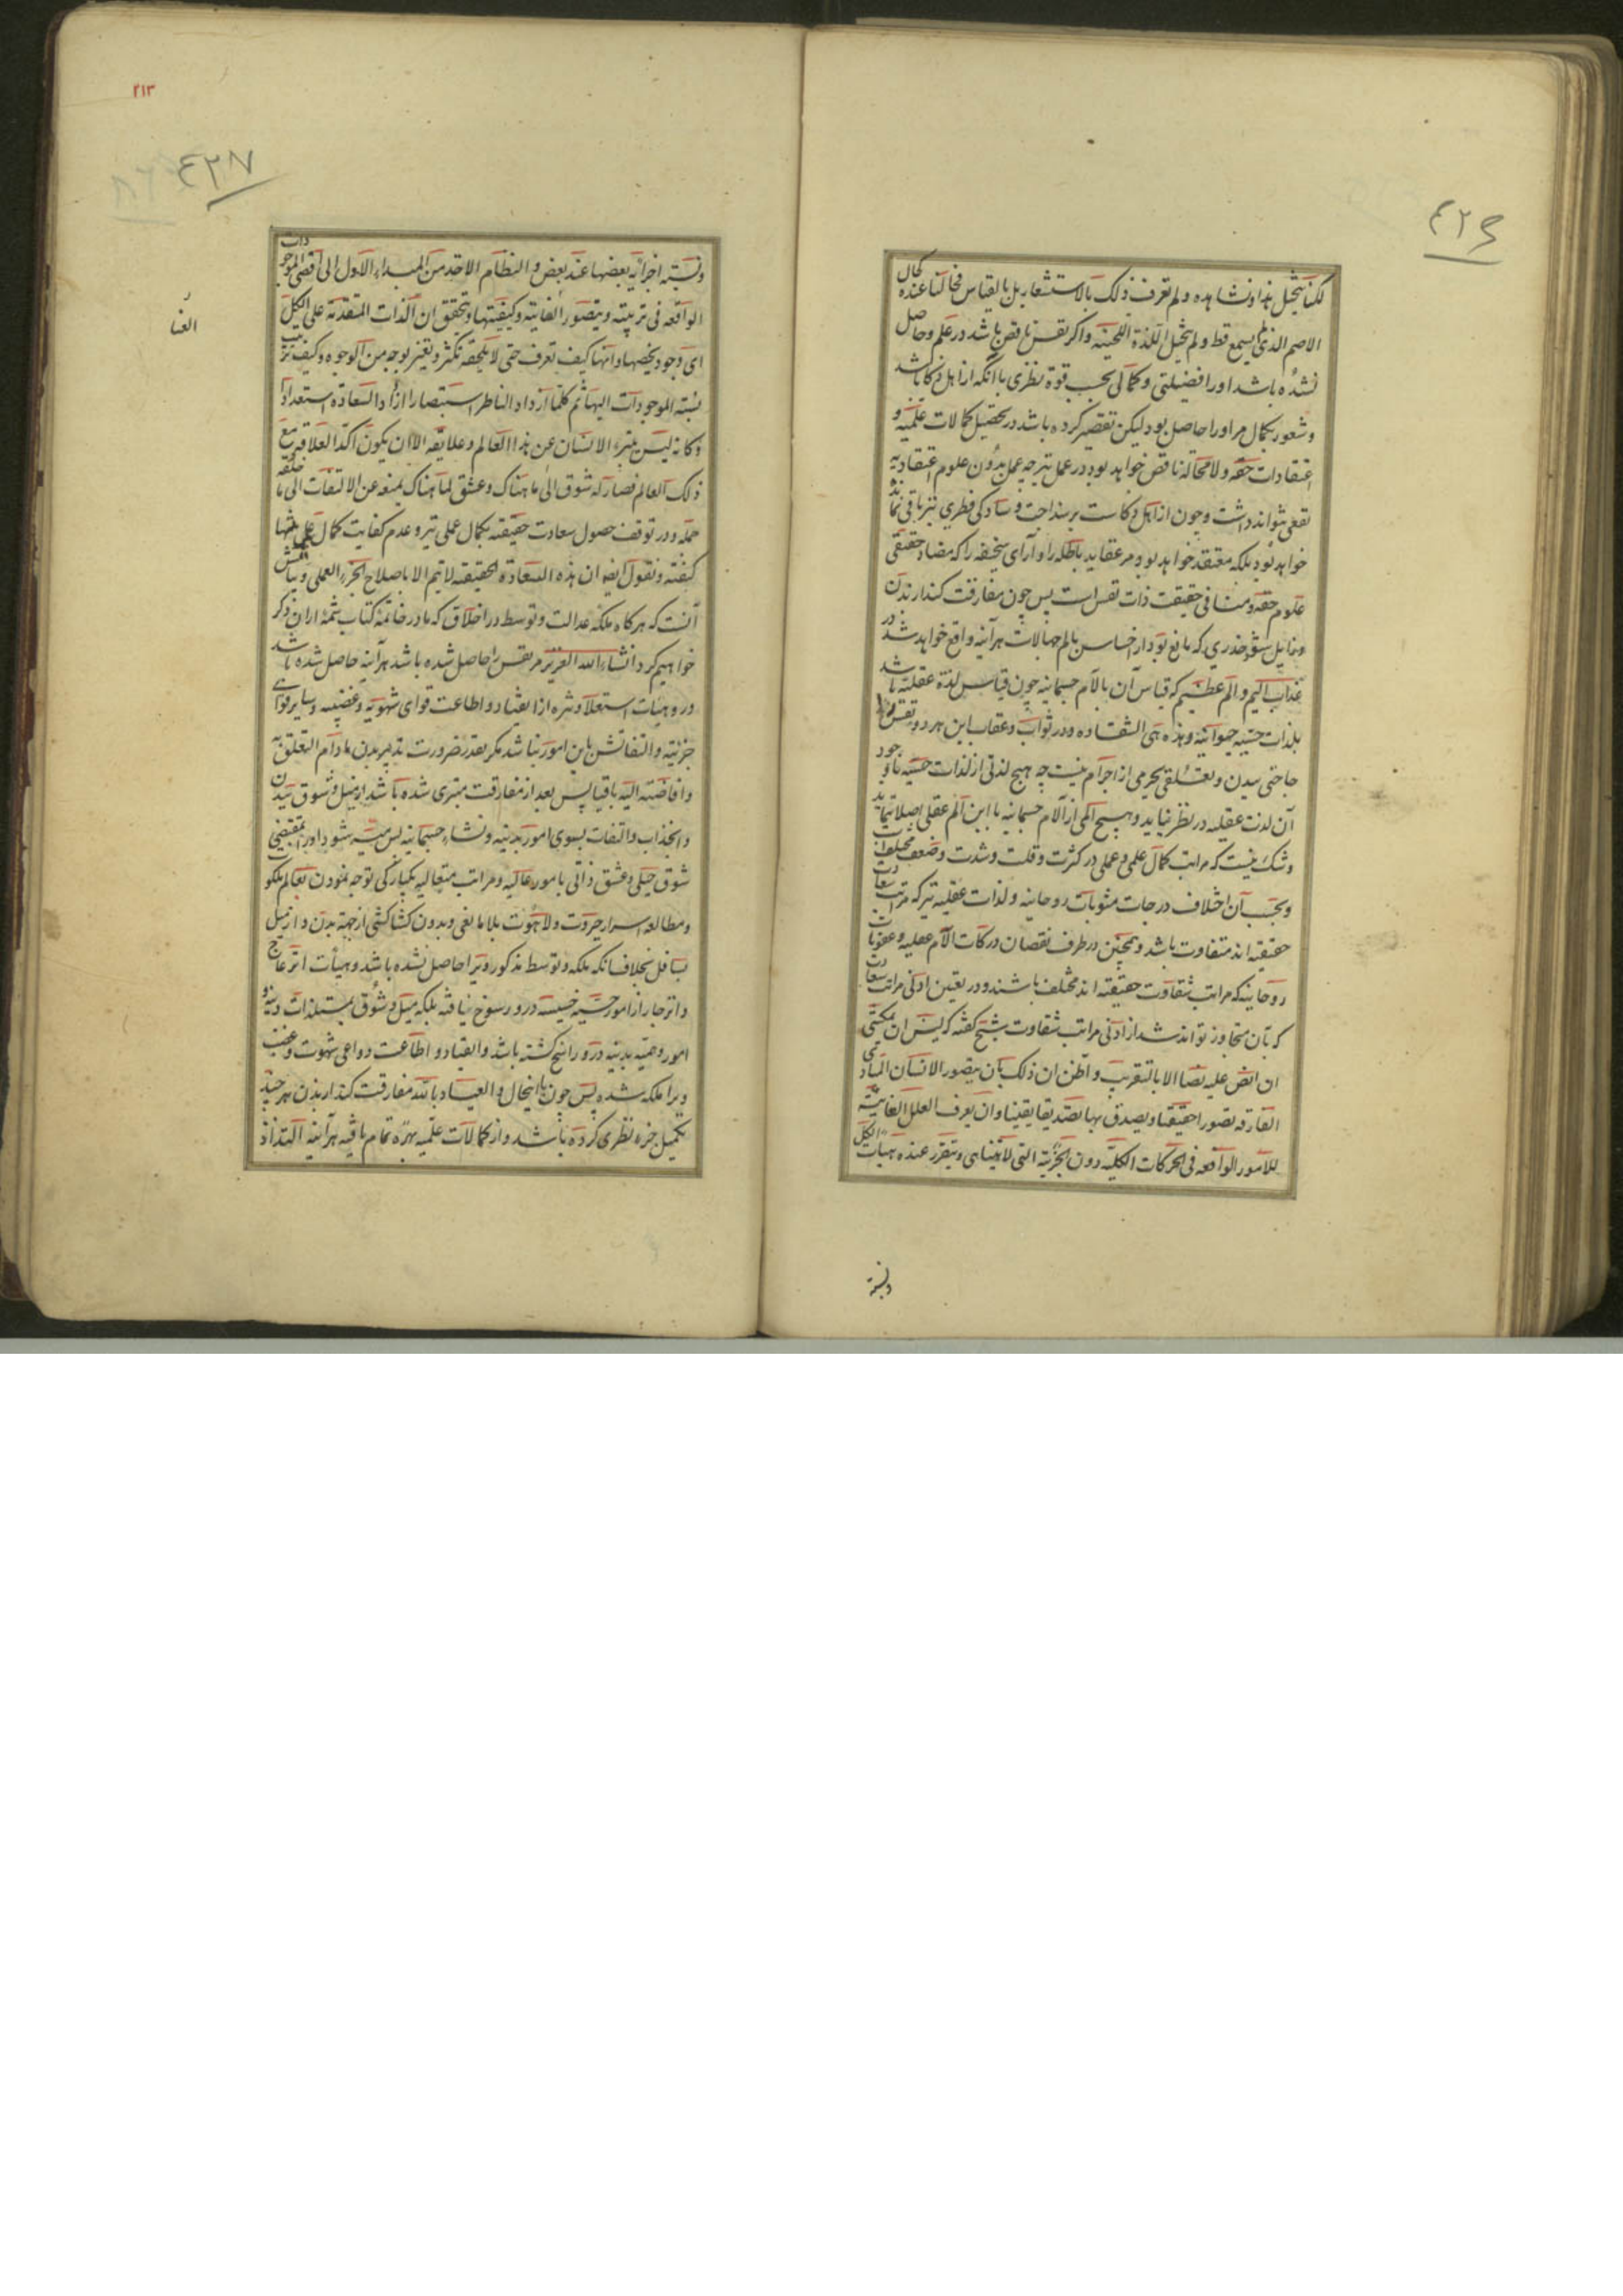 ٤٢٦
لکنا نتخیل هذا و نشاهده و لم نعرف ذلک بالاستشعار بل بالقیاس فحالنا عنده کحال
الاصم الذی لم یسمع قط و لم یتخیل اللذة اللحنیه و اکر نفس ناقص باشد در علم و حاصل
نشده باشد او را فضیلتی و کمالی بحسب قوة نظری با انکه از اهل ذکا باشد
و شعور بکمال مر او را حاصل بود لیکن تقصیر کرده باشد در تحصیل کمالات علمیه و
اعتقادات حقه و لا محاله ناقص خواهد بود در عمل نیز چه عمل بدون علوم اعتقادیه
نفعی نتواند داشت و چون از اهل ذکاست بر سذاجت و سادکی فطری نیز باقی نمانده
خواهد بود بلکه معتقد خواهد بود مر عقاید باطله را و آرای سخیفه را که مضاد حقیقی
علوم حقه و منافی حقیقت ذات نفس است پس چون مفارقت کند از بدن
و زایل شود خدری که مانع بود از احساس بالم جهالات هر آینه واقع خواهد شد در
عذاب الیم و الم عظیم که قیاس آن بآلام جسمانیه چون قیاس لذة عقلیه باشد
بلذات حسیه حیوانیه و هذه هی الشقاوه و در ثواب و عقاب این هر دو نفس را
حاجتی ببدن و تعلقی بجرمی از اجرام نیست چه هیچ لذتی از لذات حسیه با وجود
آن لذت عقلیه در نظر نیاید و هیچ المی از آلام جسمانیه با این الم عقلی اصلا ننماید
و شک نیست که مراتب کمال علمی و عملی در کثرت و قلت و شدت و ضعف مختلف است
و بحسب آن اختلاف درجات مثوبات روحانیه و لذات عقلیه نیز که مراتب سعادت
حقیقیه اند متفاوت باشد و همچنین در طرف نقصان درکات آلام عقلیه و عقوبات
روحانیه که مراتب شقاوت حقیقیه اند مختلف باشند و در تعیین ادنی مراتب سعادت
که بآن متجاوز تواند شد از ادنی مراتب شقاوت شیخ کفته که لیس یمکننی
ان انص علیه نصا الا بالتقریب و اظن ان ذلک بان یتصور الانسان المبادی
المفارقه تصورا حقیقیا و یصدق بها تصدیقا یقینیا و ان یعرف العلل الغائیة
للامور الواقعه فی الحرکات الکلیه دون الجزئیة التی لا تتناهی و یتقرر عنده هیات الکل
و نسبة
٢١٣
٤٢٧
و نسبته اجزائه بعضها عند بعض و النظام الاخذ من المبداء الاول الی اقصی الموجودات
الواقعه فی ترتیبه و یتصور العنایة و کیفیتها و یتحقق ان الذات المتقدمة علی الکل
ای وجود یخصها و انها کیف تعرف حتی لا یلحقه تکثر و تغیر بوجه من الوجوه و کیف ترتیب
نسبة الموجودات الیها ثم کلما ازداد الناظر استبصارا ازداد السعادة استعدادا
و کانه لیس یتبرء الانسان عن هذا العالم و علایقه الا ان یکون اکد العلاقه مع
ذلک العالم فصار له شوق الی ما هناک و عشق لما هناک یمنعه عن الالتفات الی ما خلفه
جمله و در توقف حصول سعادت حقیقیه بکمال عملی نیز و عدم کفایت کمال علمی تنها
کفته و نقول ایضا ان هذه السعادة الحقیقیه لا تتم الا باصلاح الجزء العملی و بیانش
آنست که هر کاه ملکه عدالت و توسط در اخلاق که ما در خاتمه کتاب شمه از ان ذکر
خواهیم کرد انشاء الله العزیز مر نفس را حاصل شده باشد هر آینه حاصل شده باشد
در و هیئات استعلا و تنزه از انقیاد و اطاعت قوای شهویه و غضبیه و سایر قوای
جزئیه و التفاتش باین امور نباشد مکر بقدر ضرورت تدبیر بدن مادام التعلق به
و افاضته الیه باقیا پس بعد از مفارقت متبری شده باشد از میل و شوق ببدن
و انجذاب و التفات بسوی امور بدنیه و نشاء جسمانیه پس میسر شود او را بمقتضی
شوق جبلی و عشق ذاتی بامور عالیه و مراتب متعالیه یکبارکی توجه نمودن بعالم ملکوت
و مطالعه اسرار جبروت و لاهوت بلا مانعی و بدون کشاکشی از جهة بدن و از میل
بسافل بخلاف انکه ملکه و توسط مذکور ویرا حاصل نشده باشد و هیأت انزعاج
و انزجار از امور حسیه خسیسه درو رسوخ نیافته بلکه میل و شوق بمستلذات دنیه و
امور وهمیه بدنیه درو راسخ کشته باشد و انقیاد و اطاعت دواعی شهوت و غضب
ویرا ملکه شده پس چون با اینحال و العیاذ بالله مفارقت کند از بدن هر چند
تکمیل جزء نظری کرده باشد و از کمالات علمیه بهره تمام یافته هر آینه التذاذ